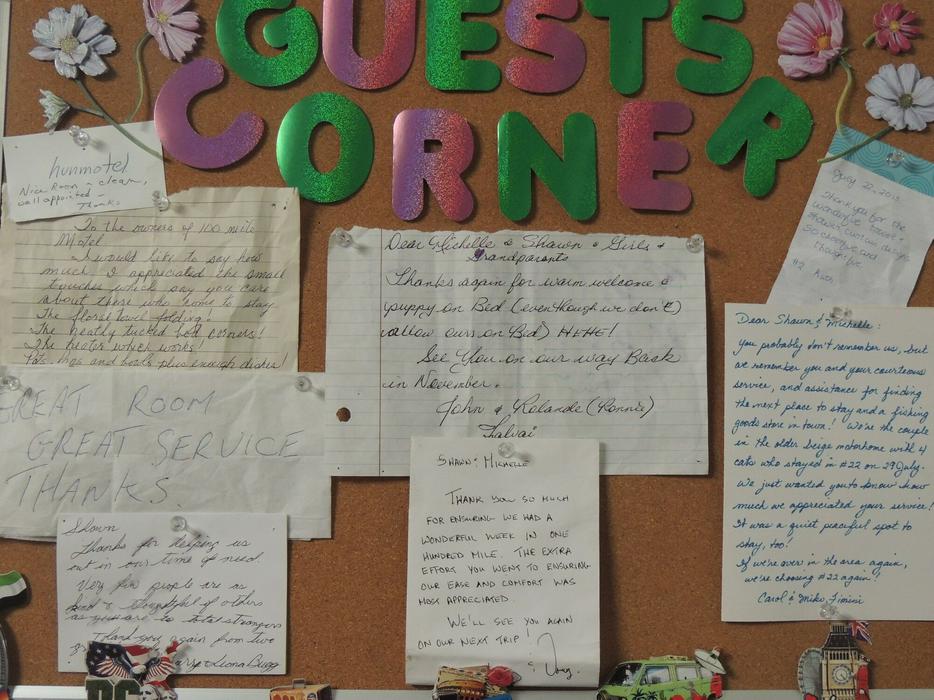 GUESTS
CORNER
hunmotel
Nice Room - clean,
well appointed -
Thanks
To the owners of 100 mile
Motel
I would like to say how
much I appreciated the small
touches which say you care
about those who come to stay.
The floral towel folding!
The neatly tucked bed corners!
The heater which works!
Pots, and bowls plus enough dishes!
GREAT ROOM
GREAT SERVICE
THANKS
Shawn
Thanks for helping us
out in our time of need.
Very few people are as
kind & thoughtful of others
as you are to total strangers
Thank you again from two
Leona Bugg
Dear Michelle & Shawn & Girls &
Grandparents
Thanks again for warm welcome &
puppy on Bed (even though we don't
allow ours on Bed) HEHE!
See You on our way Back
in November.
John & Rolande (Ronnie)
Shawn & Michelle
THANK YOU SO MUCH
FOR ENSURING WE HAD A
WONDERFUL WEEK IN ONE
HUNDRED MILE. THE EXTRA
EFFORT YOU WENT TO ENSURING
OUR EASE AND COMFORT WAS
MOST APPRECIATED.
WE'LL SEE YOU AGAIN
ON OUR NEXT TRIP!
July 22, 2013
Thank you for the
wonderful
So and
thoughtful
#2
Dear Shawn & Michelle:
you probably don't remember us, but
we remember you and your courteous
service, and assistance for finding
the next place to stay and a fishing
goods store in town! We're the couple
in the older beige motorhome with 4
cats who stayed in #22 on 29 July.
We just wanted you to know how
much we appreciated your service!
It was a quiet peaceful spot to
stay, too!
If we're over in the area again,
we're choosing #22 again!
Carol & Mike Fimini
DC